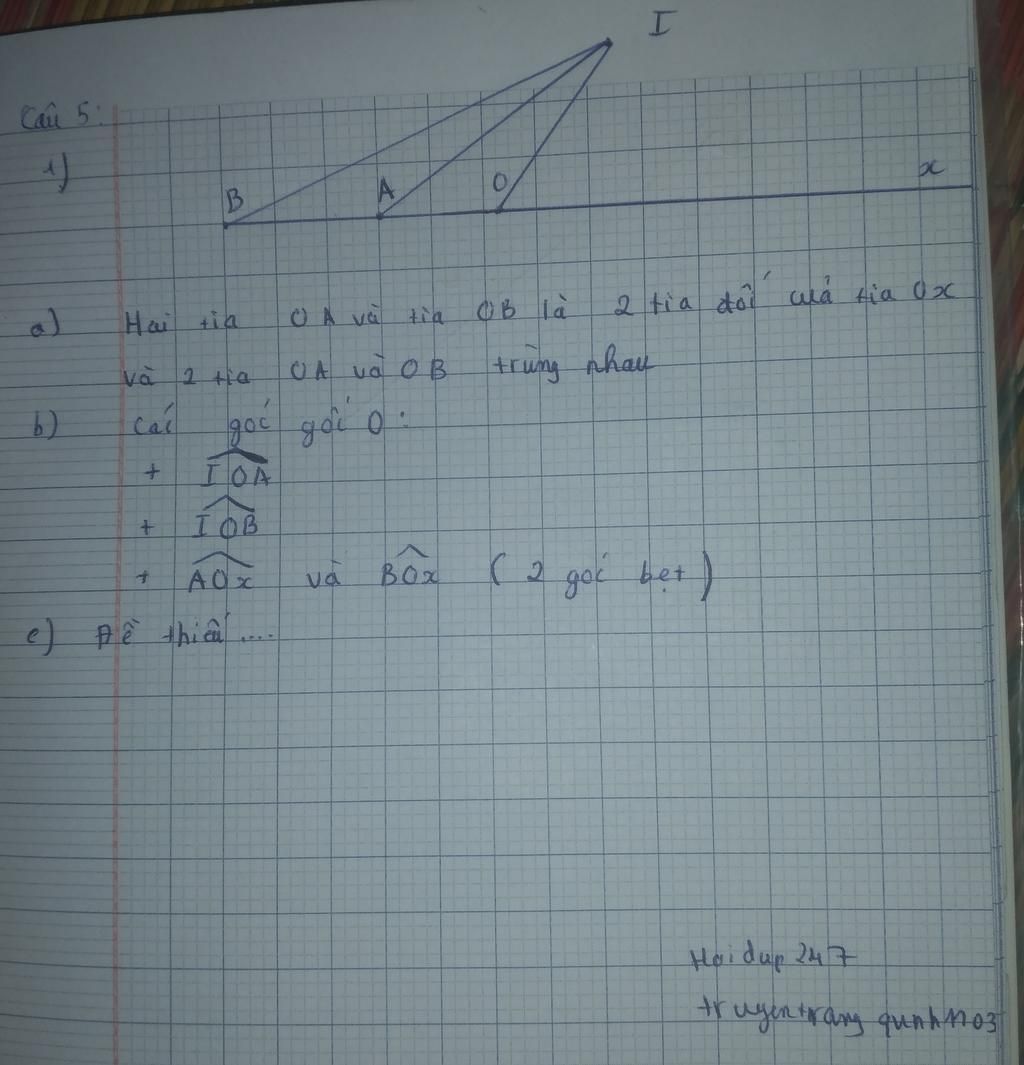 I
Câu 5:
1)
B A O x
a) Hai tia OA và tia OB là 2 tia đối của tia Ox
và 2 tia OA và OB trùng nhau
b) Các góc gốc O:
+ IOA
+ IOB
+ AOx và BOx (2 góc bẹt)
c) Đề thiếu....
Hoidap247
truyentrangqunh1103